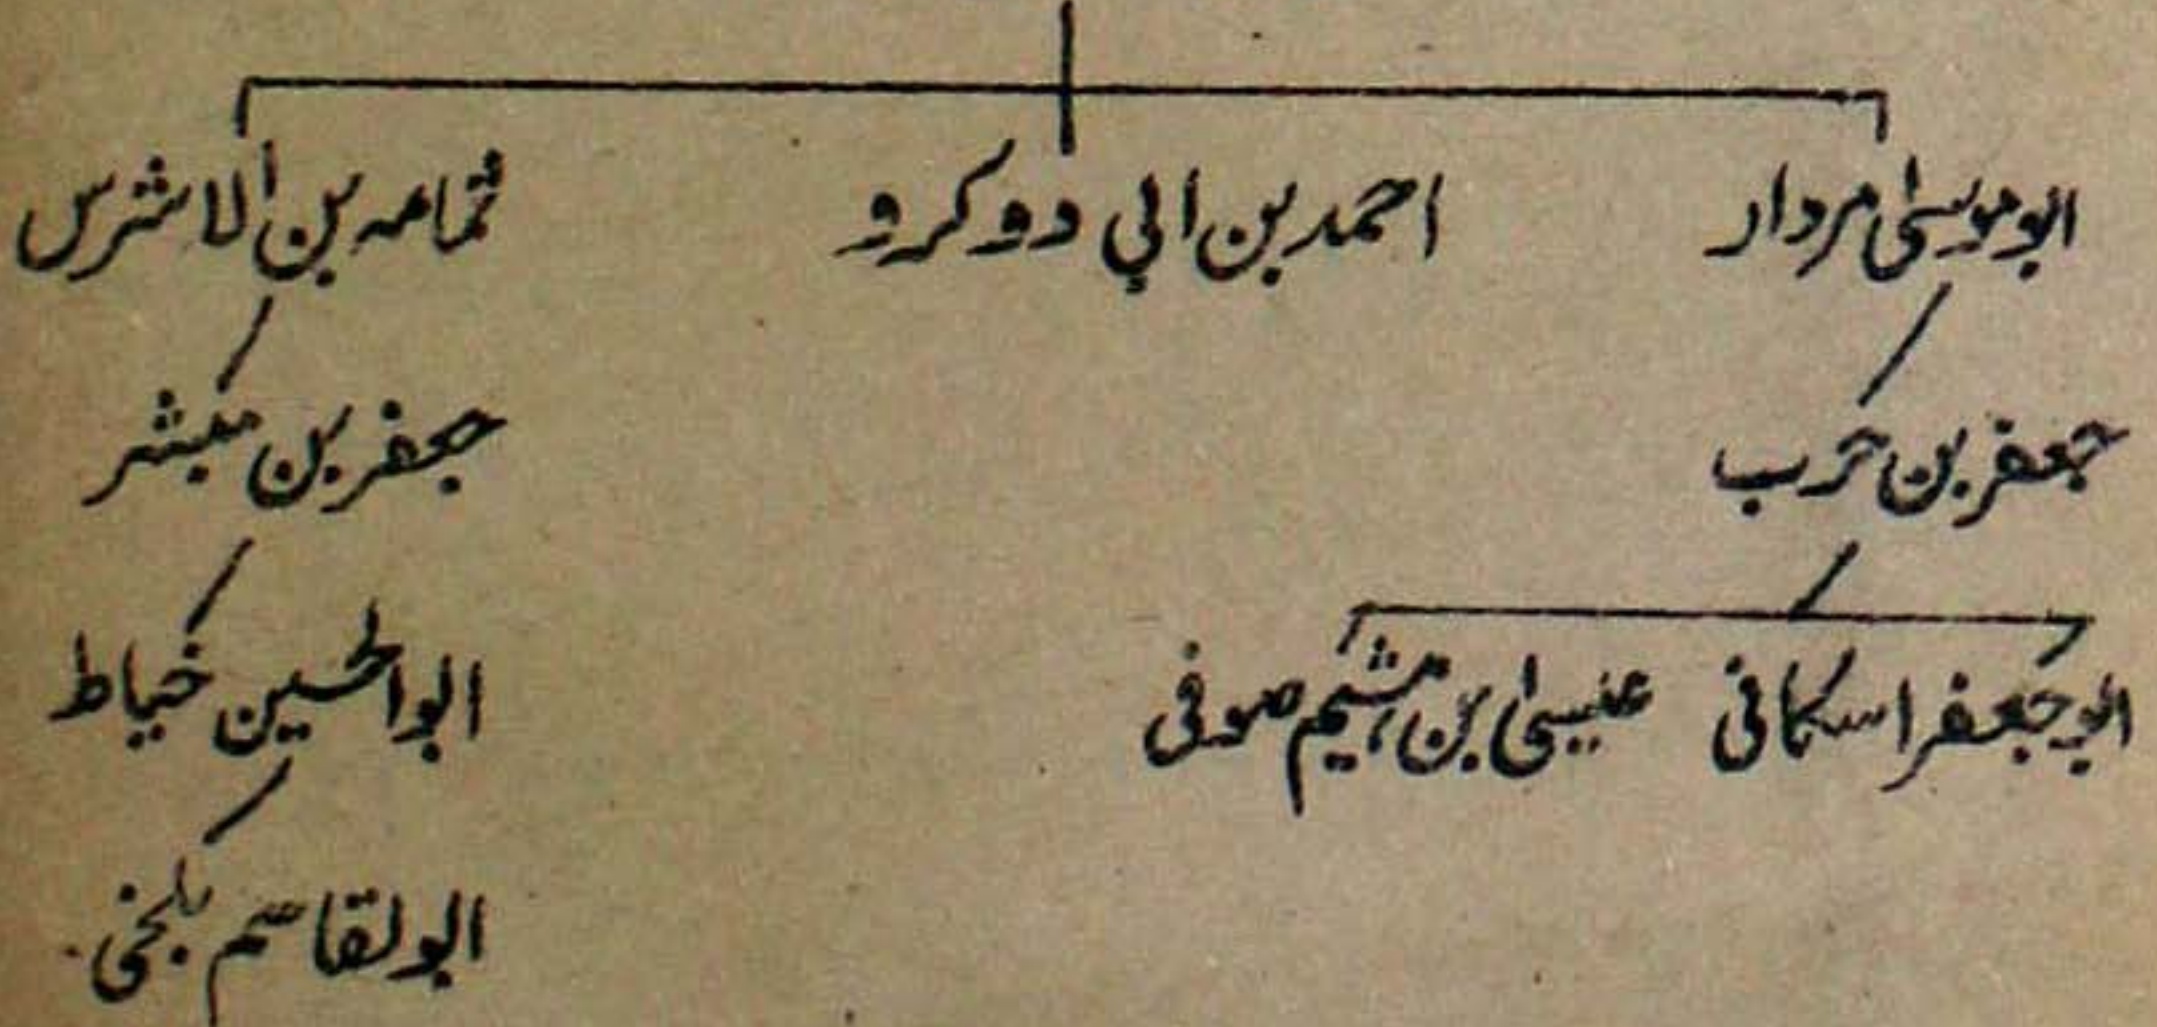 ابوموسیٰ مردار احمد بن ابي دوکرو ثمامہ بن الاشرس
جعفر بن حرب جعفر بن مبشر
ابوجعفر اسکافی عیسیٰ بن ہشیم صوفی ابوالحسین خیاط
ابولقاسم بلخی